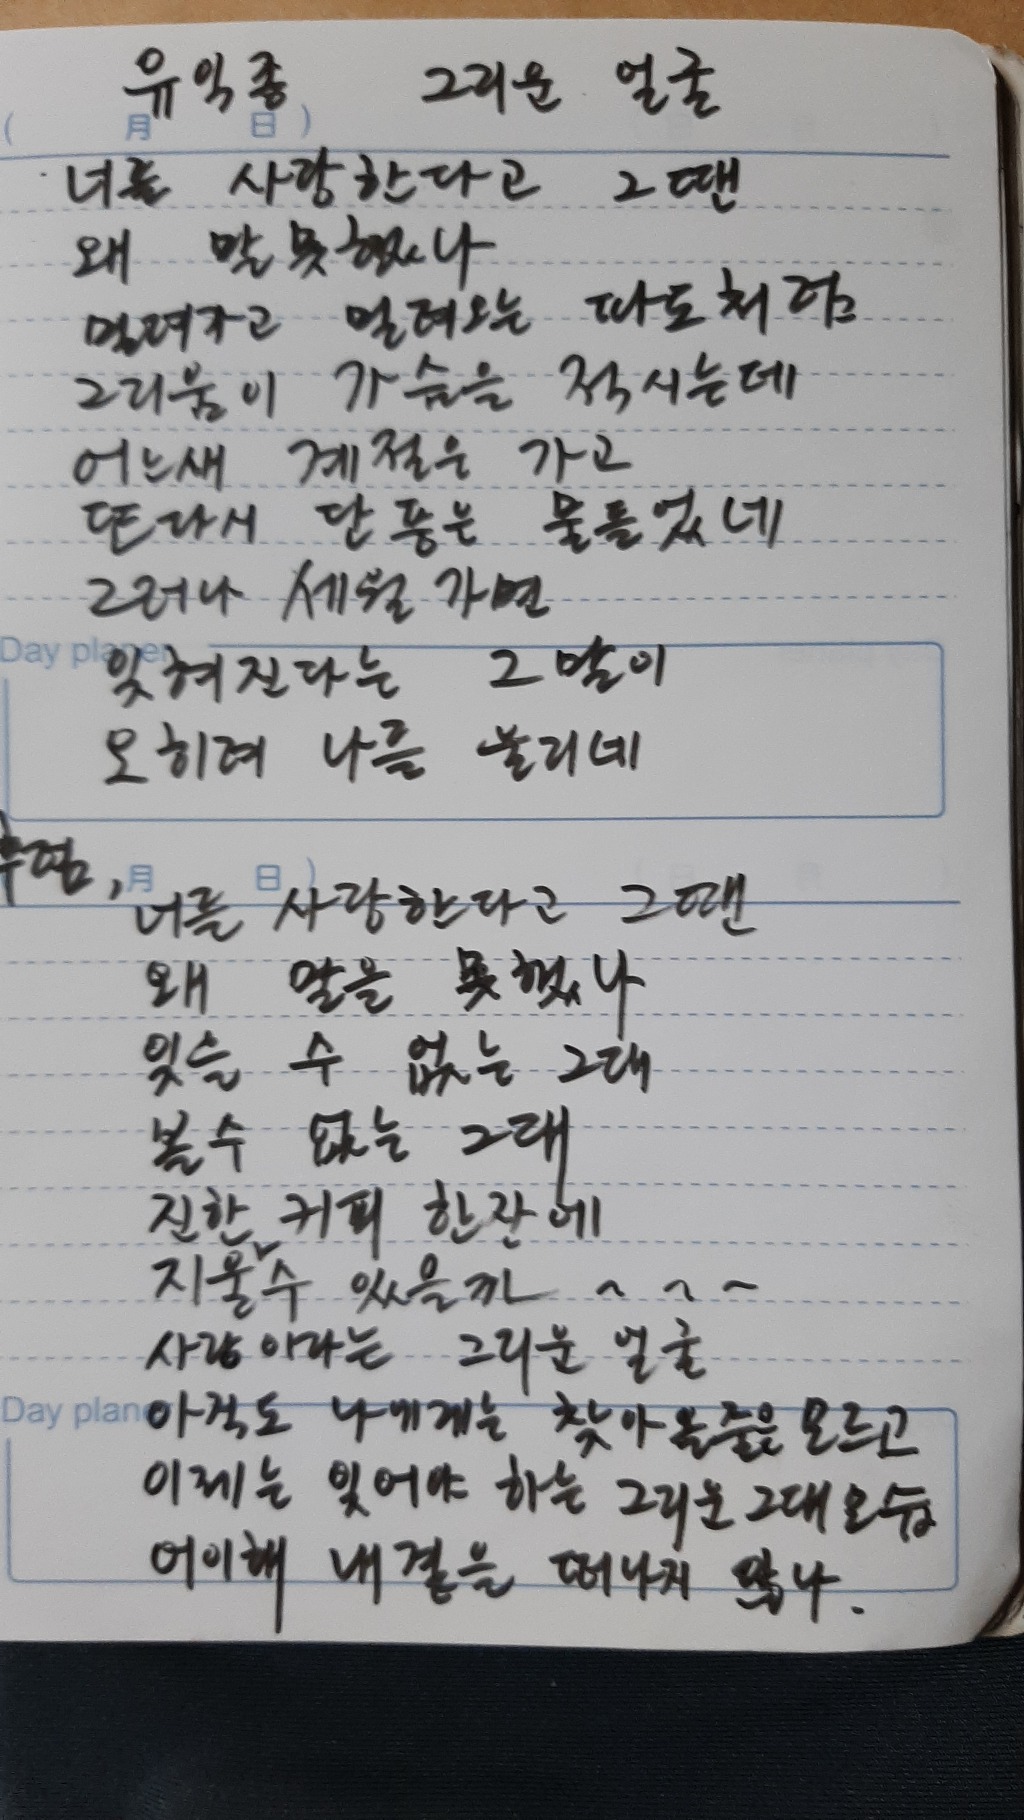 유익종 그리운 얼굴
( 月 日 )
너를 사랑한다고 그땐
왜 말못했나
밀려가고 밀려오는 파도처럼
그리움이 가슴을 적시는데
어느새 계절은 가고
또다시 단풍은 물들었네
그러나 세월 가면
Day planer
잊혀진다는 그 말이
오히려 나를 울리네
후렴,
月 日 )
너를 사랑한다고 그땐
왜 말을 못했나
잊을 수 없는 그대
볼수 없는 그대
진한 커피 한잔에
지울수 있을까 ~ ~ ~
사랑이라는 그리운 얼굴
Day plane
아직도 나에게는 찾아올줄은 모르고
이제는 잊어야 하는 그리운 그대모습
어이해 내곁을 떠나지 않나.